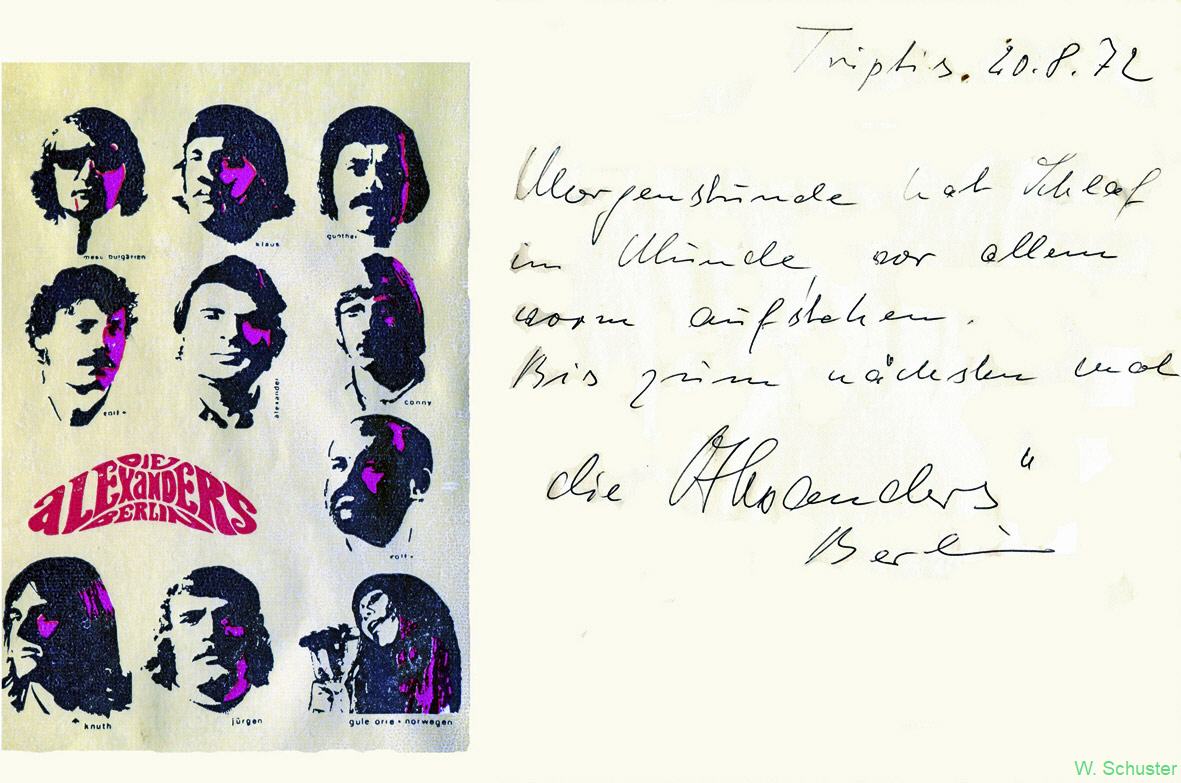 klaus
gunther
rolf
alexander
conny
DIE
ALEXANDERS
BERLIN
rolf
knuth
jürgen
norwegen
Triptis. 20.8.72
Morgenstunde hat Schlaf
im Munde, vor allem
vorm aufstehen.
Bis zum nächsten mal
die Alexanders"
Berlin
W. Schuster